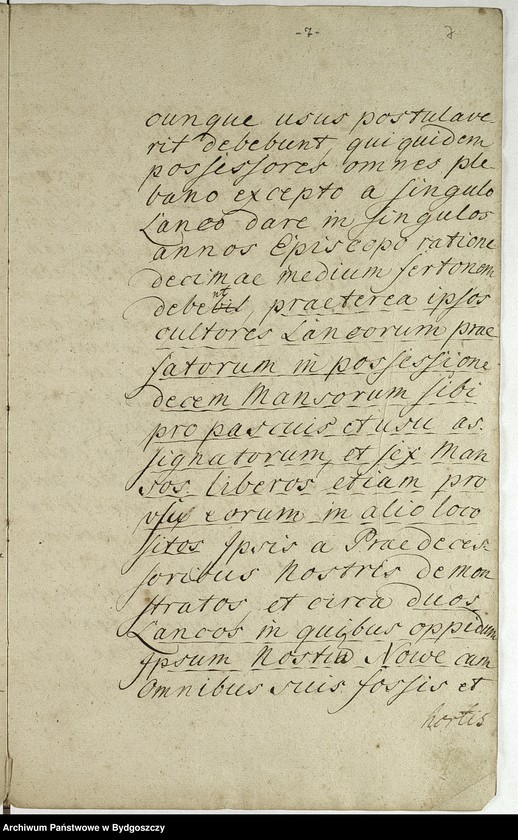 -7-
7
cunque usus postulave
rit debebunt, qui quidem
possessores omnes ple-
bano excepto a singulo
Laneo dare in singulos
annos Episcopo ratione
decimae medium fertonem
debent, praeterea ipsos
cultores Laneorum prae
fatorum in possessione
decem Mansorum sibi
pro pascuis et usu as.
signatorum, et sex Man
sos liberos etiam pro
usu eorum in alio loco
sitos Ipsis a Praedeces-
soribus Nostris demon
stratos, et circa duos
Laneos in quibus oppidum
Ipsum Nostrum Nowe cum
Omnibus suis fossis et
hortis
Archiwum Państwowe w Bydgoszczy